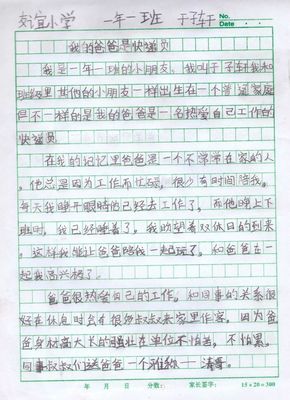 交谊小学 一年一班 于子轩
No.
Date
我的爸爸是快递员
我是一年一班的小朋友,我叫于子轩我和
班级里其他的小朋友一样出生在一个普通家庭
但不一样的是我的爸爸是一名热爱自己工作的
快递员
在我的记忆里爸爸是一个不常常在家的人
。他总是因为工作而忙碌,很少有时间陪我。
每天我睁开眼睛他已经去工作了,而他晚上下
班时,我已经睡着了。我盼望着双休日的到来
。这样我能让爸爸陪我一起玩了,和爸爸在一
起我高兴极了。
爸爸很热爱自己的工作。和同事的关系很
好在休息时会有很多叔叔来家里作客,因为爸
爸身材高大长的强壮在单位不怕苦,不怕累。
同事叔叔们送爸爸一个 —— 清哥。
年 月 日 分数: 家长签字: 15×20=300